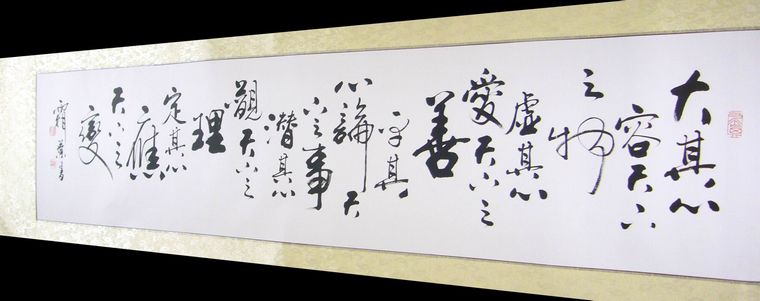 大其心
容天下
之物
虛其心
愛天下之
善
平其
心論天
下之事
潛其心
觀天下之
理
定其心
應
天下之
變
霜